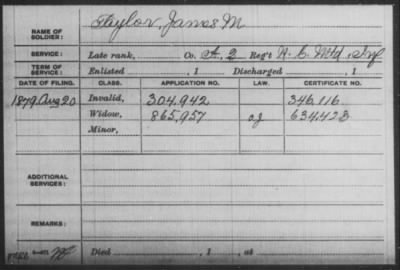 NAME OF SOLDIER: Taylor, James M
SERVICE: Late rank, Co. A, 2 Reg't N. C. Mtd. Inf
TERM OF SERVICE: Enlisted , 1 Discharged , 1
DATE OF FILING. CLASS. APPLICATION NO. LAW. CERTIFICATE NO.
1879 Aug 20 Invalid, 304,942 346,116
Widow, 865,957 634,428
Minor,
ADDITIONAL SERVICES:
REMARKS:
Died , 1 , at